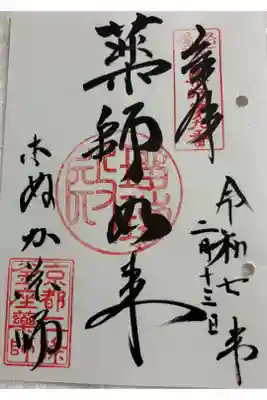 奉拝
令和七年
二月十三日
薬師如来
ぬか薬師
京都二条
釜座薬師